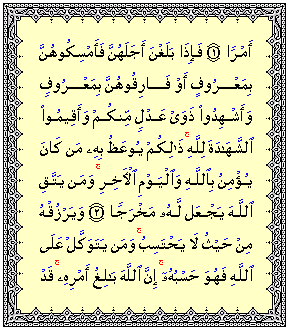 أَمْرًا ﴿١﴾ فَإِذَا بَلَغْنَ أَجَلَهُنَّ فَأَمْسِكُوهُنَّ
بِمَعْرُوفٍ أَوْ فَارِقُوهُنَّ بِمَعْرُوفٍ
وَأَشْهِدُوا۟ ذَوَىْ عَدْلٍ مِّنكُمْ وَأَقِيمُوا۟
ٱلشَّهَٰدَةَ لِلَّهِ ۚ ذَٰلِكُمْ يُوعَظُ بِهِۦ مَن كَانَ
يُؤْمِنُ بِٱللَّهِ وَٱلْيَوْمِ ٱلْءَاخِرِ ۚ وَمَن يَتَّقِ
ٱللَّهَ يَجْعَل لَّهُۥ مَخْرَجًا ﴿٢﴾ وَيَرْزُقْهُ
مِنْ حَيْثُ لَا يَحْتَسِبُ ۚ وَمَن يَتَوَكَّلْ عَلَى
ٱللَّهِ فَهُوَ حَسْبُهُۥٓ ۚ إِنَّ ٱللَّهَ بَٰلِغُ أَمْرِهِۦ ۚ قَدْ